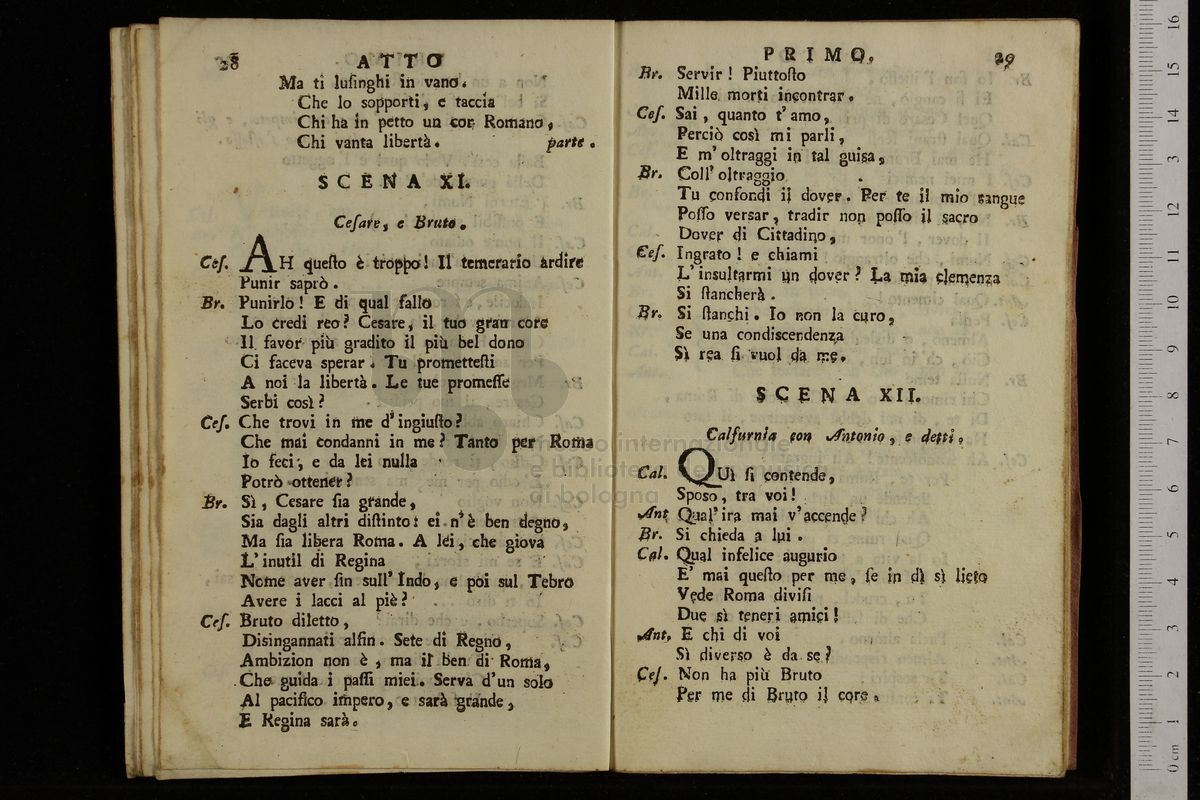 28 ATTO
Ma ti luſinghi in vano.
Che lo sopporti, e taccia
Chi ha in petto un cor Romano,
Chi vanta libertà. parte.
SCENA XI.
Ceſare, e Bruto.
Ceſ. AH queſto è troppo! Il temerario ardire
Punir saprò.
Br. Punirlo! E di qual fallo
Lo credi reo? Cesare, il tuo gran core
Il favor più gradito il più bel dono
Ci faceva sperar. Tu prometteſti
A noi la libertà. Le tue promeſſe
Serbi così?
Ceſ. Che trovi in me d'ingiuſto?
Che mai condanni in me? Tanto per Roma
Io feci, e da lei nulla
Potrò ottener?
Br. Sì, Cesare ſia grande,
Sia dagli altri diſtinto: ei n'è ben degno,
Ma ſia libera Roma. A lei, che giova
L'inutil di Regina
Nome aver ſin sull'Indo, e poi sul Tebro
Avere i lacci al piè?
Ceſ. Bruto diletto,
Disingannati alfin. Sete di Regno,
Ambizion non è, ma il ben di Roma,
Che guida i paſſi miei. Serva d'un solo
Al pacifico impero, e sarà grande,
E Regina sarà.
PRIMO, 29
Br. Servir! Piuttoſto
Mille morti incontrar.
Ceſ. Sai, quanto t'amo,
Perciò così mi parli,
E m'oltraggi in tal guisa,
Br. Coll'oltraggio
Tu confondi il dover. Per te il mio sangue
Poſſo versar, tradir non poſſo il sacro
Dover di Cittadino,
Ceſ. Ingrato! e chiami
L'insultarmi un dover? La mia clemenza
Si ſtancherà.
Br. Si ſtanchi. Io non la curo,
Se una condiscendenza
Sì rea ſi vuol da me.
SCENA XII.
Calfurnia con Antonio, e detti,
Cal. QUì ſi contende,
Sposo, tra voi!
Ant Qual'ira mai v'accende?
Br. Si chieda a lui.
Cal. Qual infelice augurio
E' mai queſto per me, ſe in dì sì lieto
Vede Roma diviſi
Due sì teneri amici!
Ant, E chi di voi
Sì diverso è da se?
Ceſ. Non ha più Bruto
Per me di Bruto il core.
museo internazionale
e biblioteca della musica
di bologna
0 cm 1 2 3 4 5 6 7 8 9 10 11 12 13 14 15 16